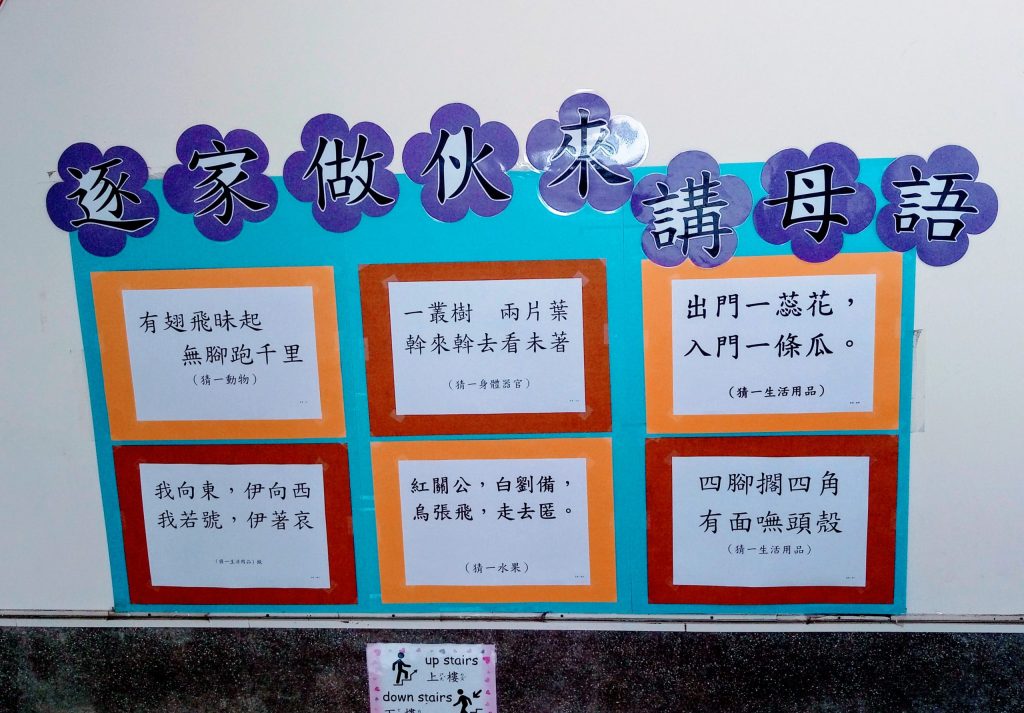 逐家做伙來講母語
有翅飛昧起
無腳跑千里
（猜一動物）
一叢樹　兩片葉
斡來斡去看未著
（猜一身體器官）
出門一蕊花，
入門一條瓜。
（猜一生活用品）
我向東，伊向西
我若號，伊著哀
（猜一生活用品）
紅關公，白劉備，
烏張飛，走去匿。
（猜一水果）
四腳擱四角
有面嘸頭殼
（猜一生活用品）
up stairs
上樓
down stairs
下樓